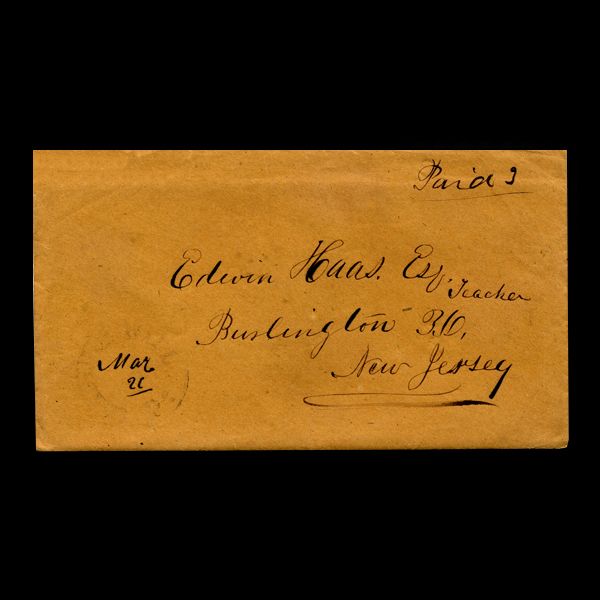 Paid 3
Edwin Haas. Esq.
Teacher
Burlington
New Jersey
Mar
21